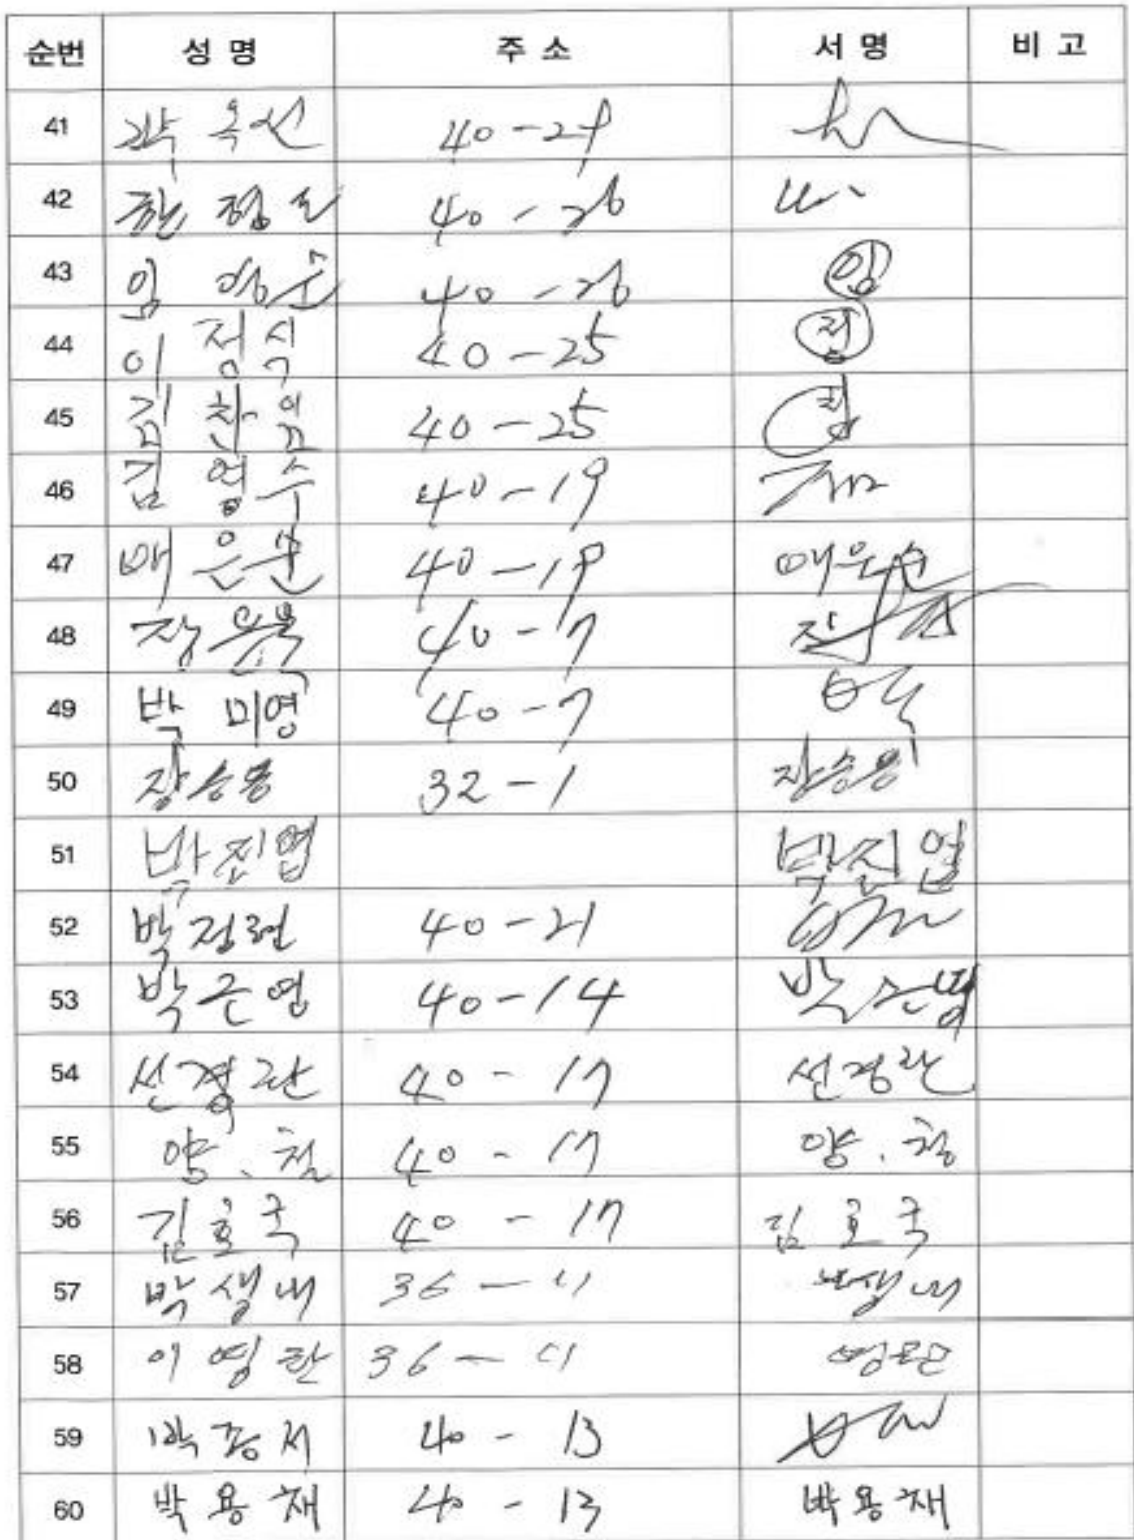 순번 성명 주소 서명 비고
41 곽옥선 40-29
42 40-26
43 임 40-26 임
44 이정식 40-25 정
45 김찬임 40-25
46 김영수 40-19
47 배은순 40-19 배은순
48 장용복 40-7
49 박미영 40-7
50 장승용 32-1 장승용
51 박진엽 박진엽
52 박정련 40-21
53 박근영 40-14 박근영
54 선경란 40-17 선경란
55 양.철 40-17 양.철
56 김호국 40-17 김호국
57 박생내 36-11 박생내
58 이영란 36-11 영란
59 박종서 40-13
60 박용채 40-13 박용채